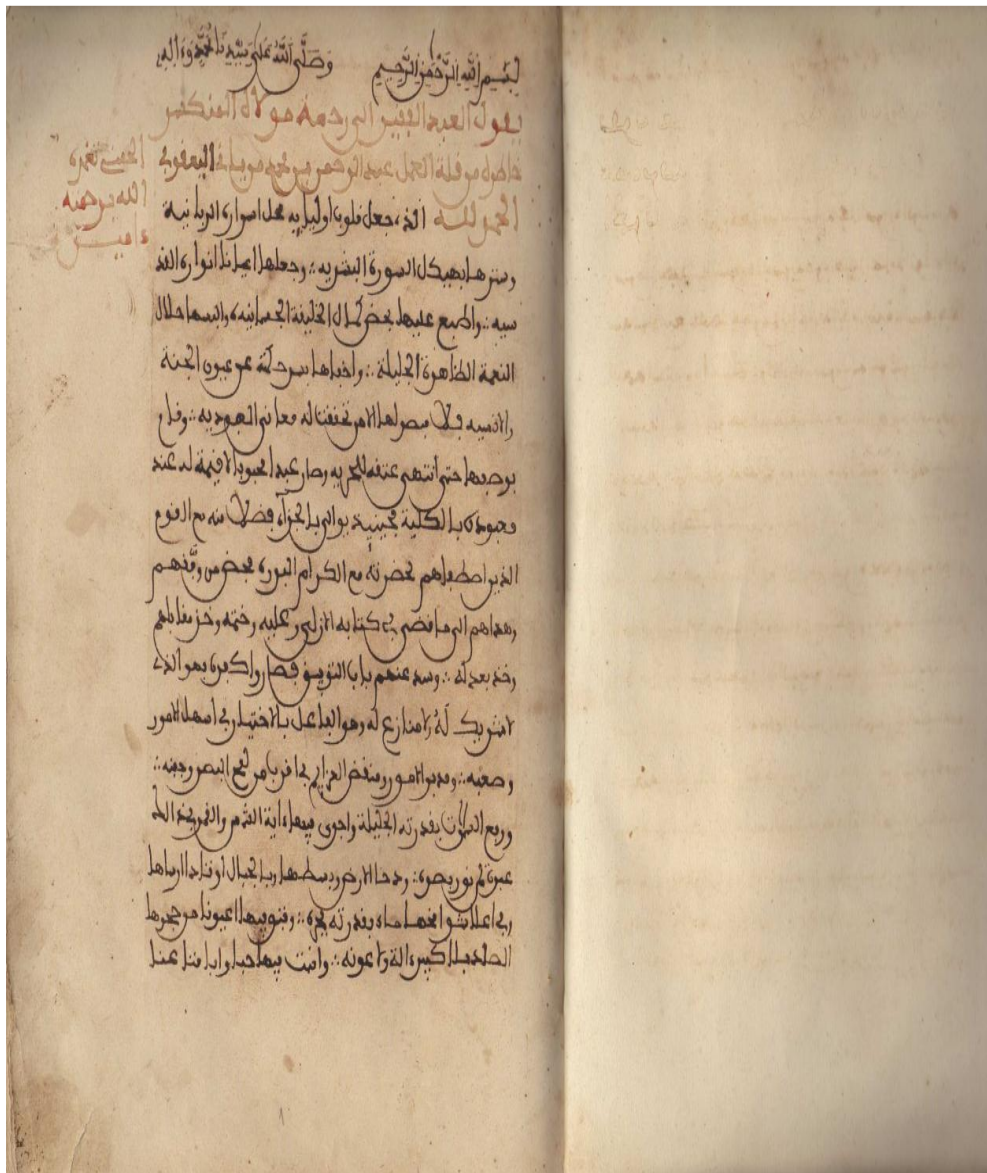 بسم الله الرحمن الرحيم وصلى الله على سيدنا محمد وءاله
يقول العبد الفقير الى رحمة مولاه المنكسر
خاطره من قلة العمل عبد الرحمن بن محمد اليعقوبي
الحسني تغمده
الله برحمته
ءاميـــن
الحمد لله الذي جعل قلوب اوليايه محل اسراره الربانية
وسترها بهيكل الصورة البشريه وجعلها اعيانا انواره القد
سيه واطبع عليها بمحض كمال الخليفة الجسمانيه والبسها حلال
النعمة الظاهرة الجليلة واخباها بسر حكمة عن عيون الجنة
والانسيه فلا يبصر لها الا من تحققت له معاني العبوديه وقام
بوصفها حتى انتهى عتقه للحريه وصار عبدا محبوبا لا قيمة له عند
معبوده بالكلية فحينيذ يوالى بالجزاء فضلا منه مع القوم
الذين اصطفاهم لحضرته مع الكرام البررة بمحض من وفقهم
وهداهم الى ما قضى في كتابه الازلي وختمه
وخذ بعدله وسد عنهم باب التوفيق فصاروا كفرة فهو الذي
لا شريك له ولا منازع له وهو الفاعل بالاختيار في اسهل الامور
وصعبه ومدبر الامور ومنفض العزايم بما اقرب من لمح البصر وجفنه
ورفع السموات بقدرته الجليلة واجرى فيهاءاية الشمس والقمر
عبرة لم نور بصره ودحا الارض وبسطها وبالجبال اوتادا ارساها
وفي اعلا شوامخها ماء بقدرته يجره وفتق فيها اعيونا من حجرها
الصلد بلا كبيرءالة ولا عونه وانبت فيها حبا وابا عنبا